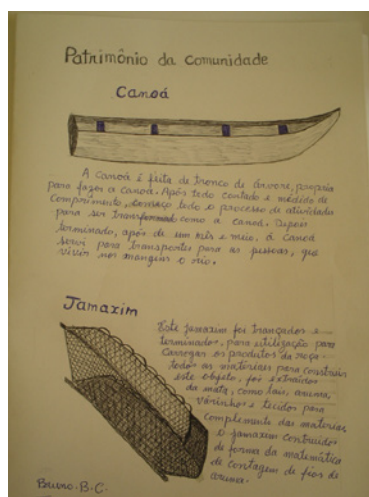 Patrimônio da comunidade
Canoá
A canoá é feita de tronco de árvore, própria
para fazer a canoá. Após tedo contado e medido de
comprimento, começo tedo o processo de atividade
para ser transformado como a canoá. Depois
terminado, após de um mês e meio, á canoá
servi para transportes para as pessoas, que
vivin nos mangens o rio.
Jamaxim
Este jamaxim foi trançados e
terminados, para utilização para
carregar os produtos da roça.
todos as matérias para construir
este objeto, foi extraídos
da mata, como
varinhos e tecidos para
complemente das matérias
o jamaxim contruidos
de forma da matemática
de contagem de fios de
aruma.
Bruno.B.C.